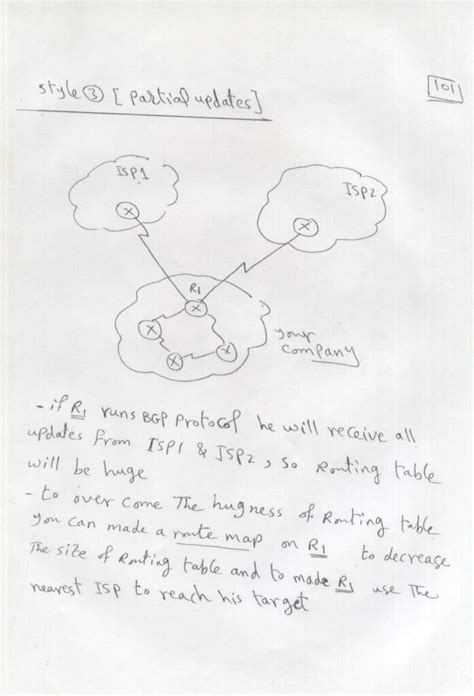 style ③ [ partial updates ]
101
ISP1
ISP2
R1
your
company
- if R1 runs BGP Protocol he will receive all
updates From ISP1 & ISP2, so Routing table
will be huge
- to over come The hugness of Routing table
you can made a route map on R1 to decrease
The size of Routing table and to made R1 use The
nearest ISP to reach his target